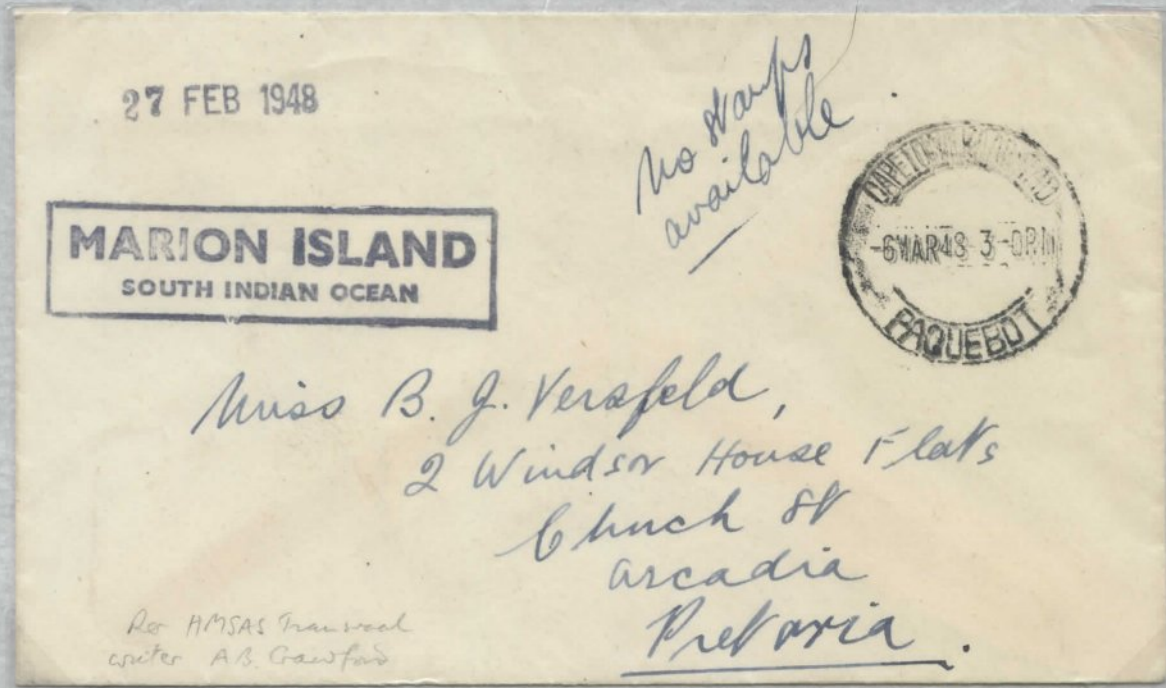 27 FEB 1948
No stamps
available
CAPETOWN KAAPSTAD
-6MAR48 3-0PM
PAQUEBOT
MARION ISLAND
SOUTH INDIAN OCEAN
Miss B. J. Versfeld,
2 Windsor House Flats
Church St
Arcadia
Pretoria.
Per HMSAS Transvaal
writer A.B. Crawford